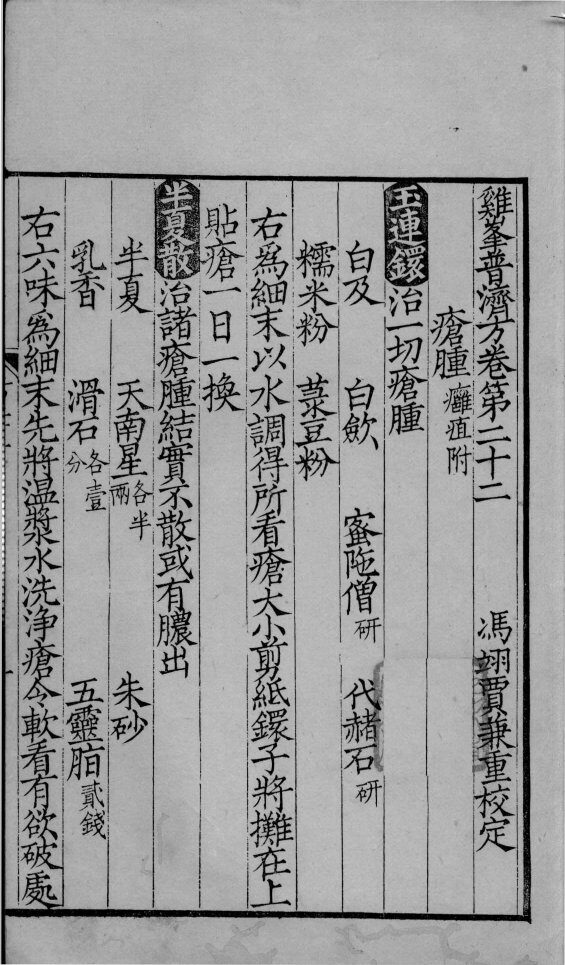 雞峯普濟方卷第二十二　馮翊賈兼重校定
瘡腫 癰疽附
玉連鐶 治一切瘡腫
白及　白歛　蜜陁僧 研　代赭石 研
糯米粉　菉豆粉
右爲細末以水調得所看瘡大小剪紙鐶子將攤在上
貼瘡一日一換
半夏散 治諸瘡腫結實不散或有膿出
半夏　天南星 各半兩　朱砂
乳香　滑石 各壹分　五靈脂 貳錢
右六味爲細末先將温漿水洗浄瘡令軟看有欲破處